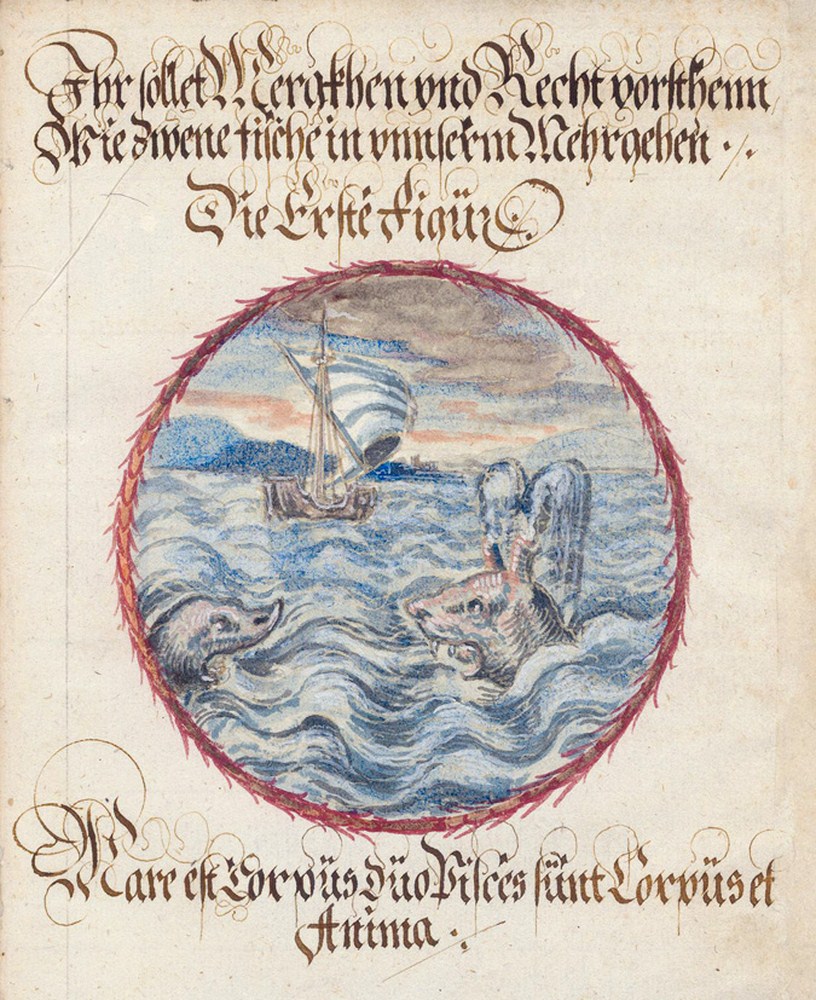 Ihr sollet Mergkhen vnd Recht vorsthenn,
Wie zwene fische in vnnserm Mehr gehen ·/·
Die Erste Figür
Mare est Corpüs düo Pisces sünt Corpüs et
Anima ·/·